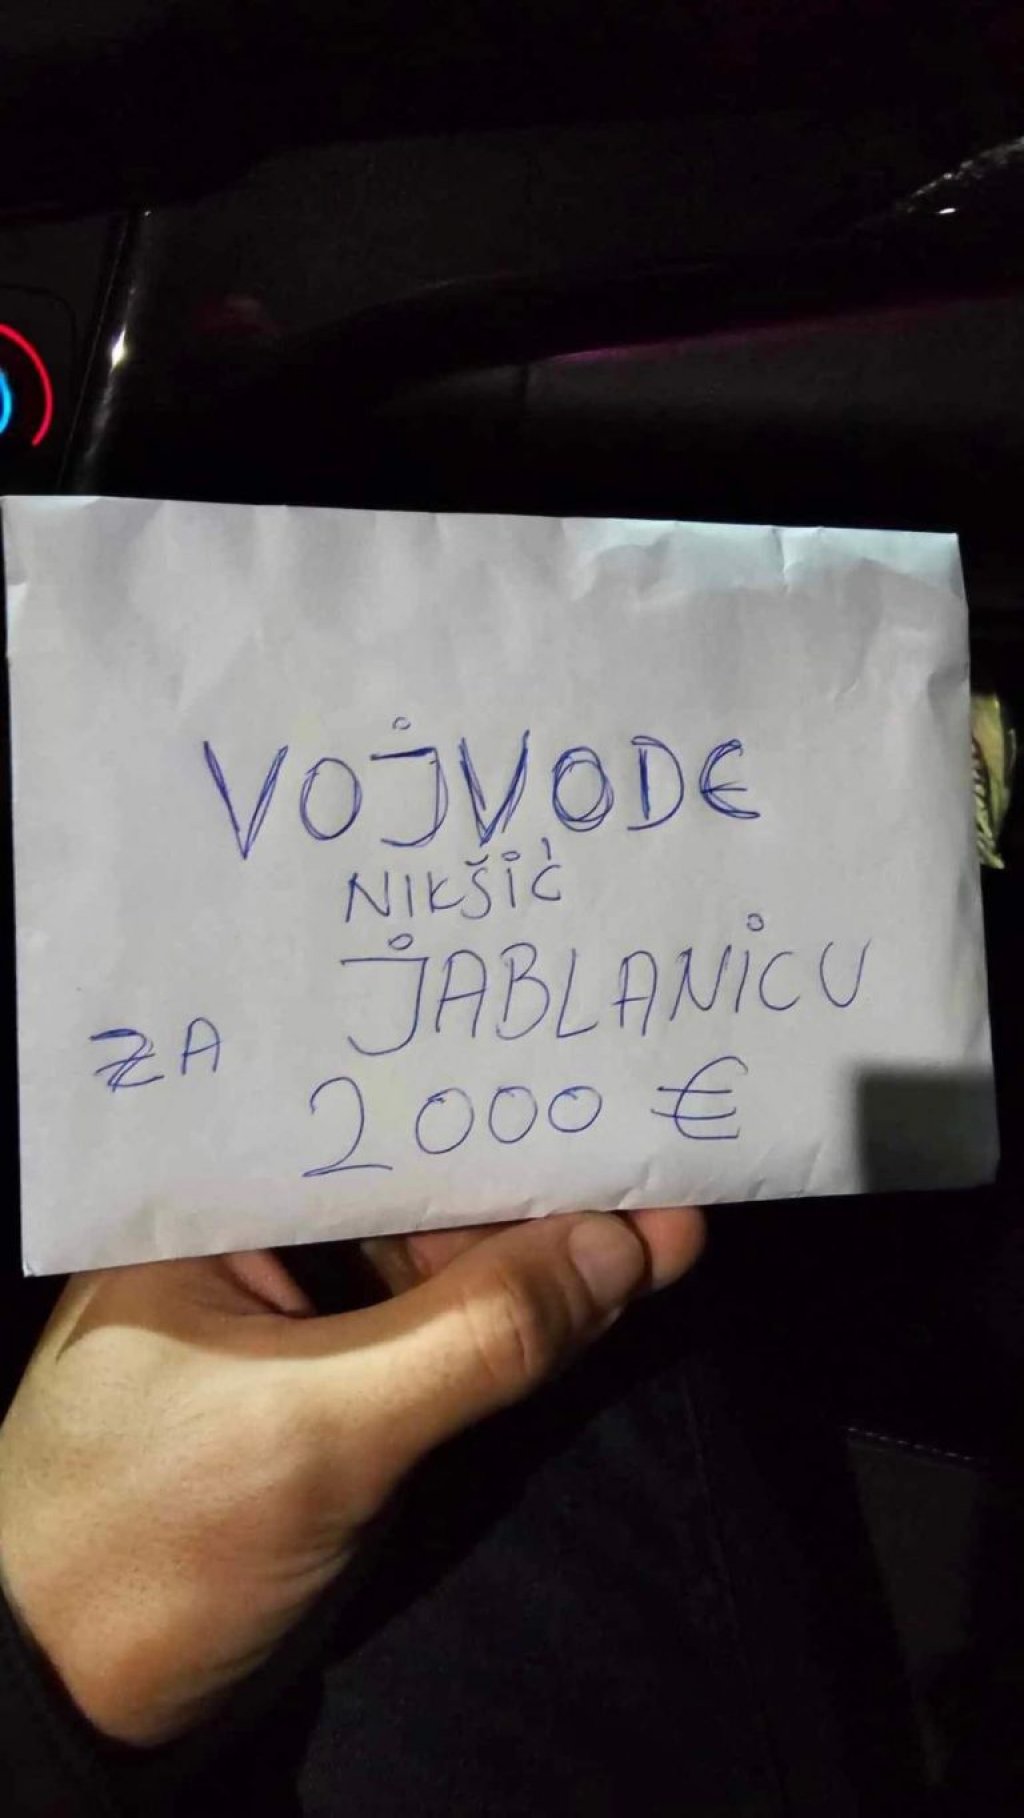 VOJVODE
NIKŠIĆ
ZA JABLANICU
2000 €